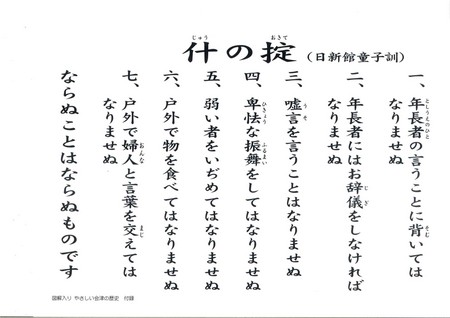 什の掟(日新館童子訓)
一、年長者の言うことに背いては
なりませぬ
二、年長者にはお辞儀をしなければ
なりませぬ
三、嘘言を言うことはなりませぬ
四、卑怯な振舞をしてはなりませぬ
五、弱い者をいぢめてはなりませぬ
六、戸外で物を食べてはなりませぬ
七、戸外で婦人と言葉を交えては
なりませぬ
ならぬことはならぬものです
図解入り やさしい会津の歴史 付録